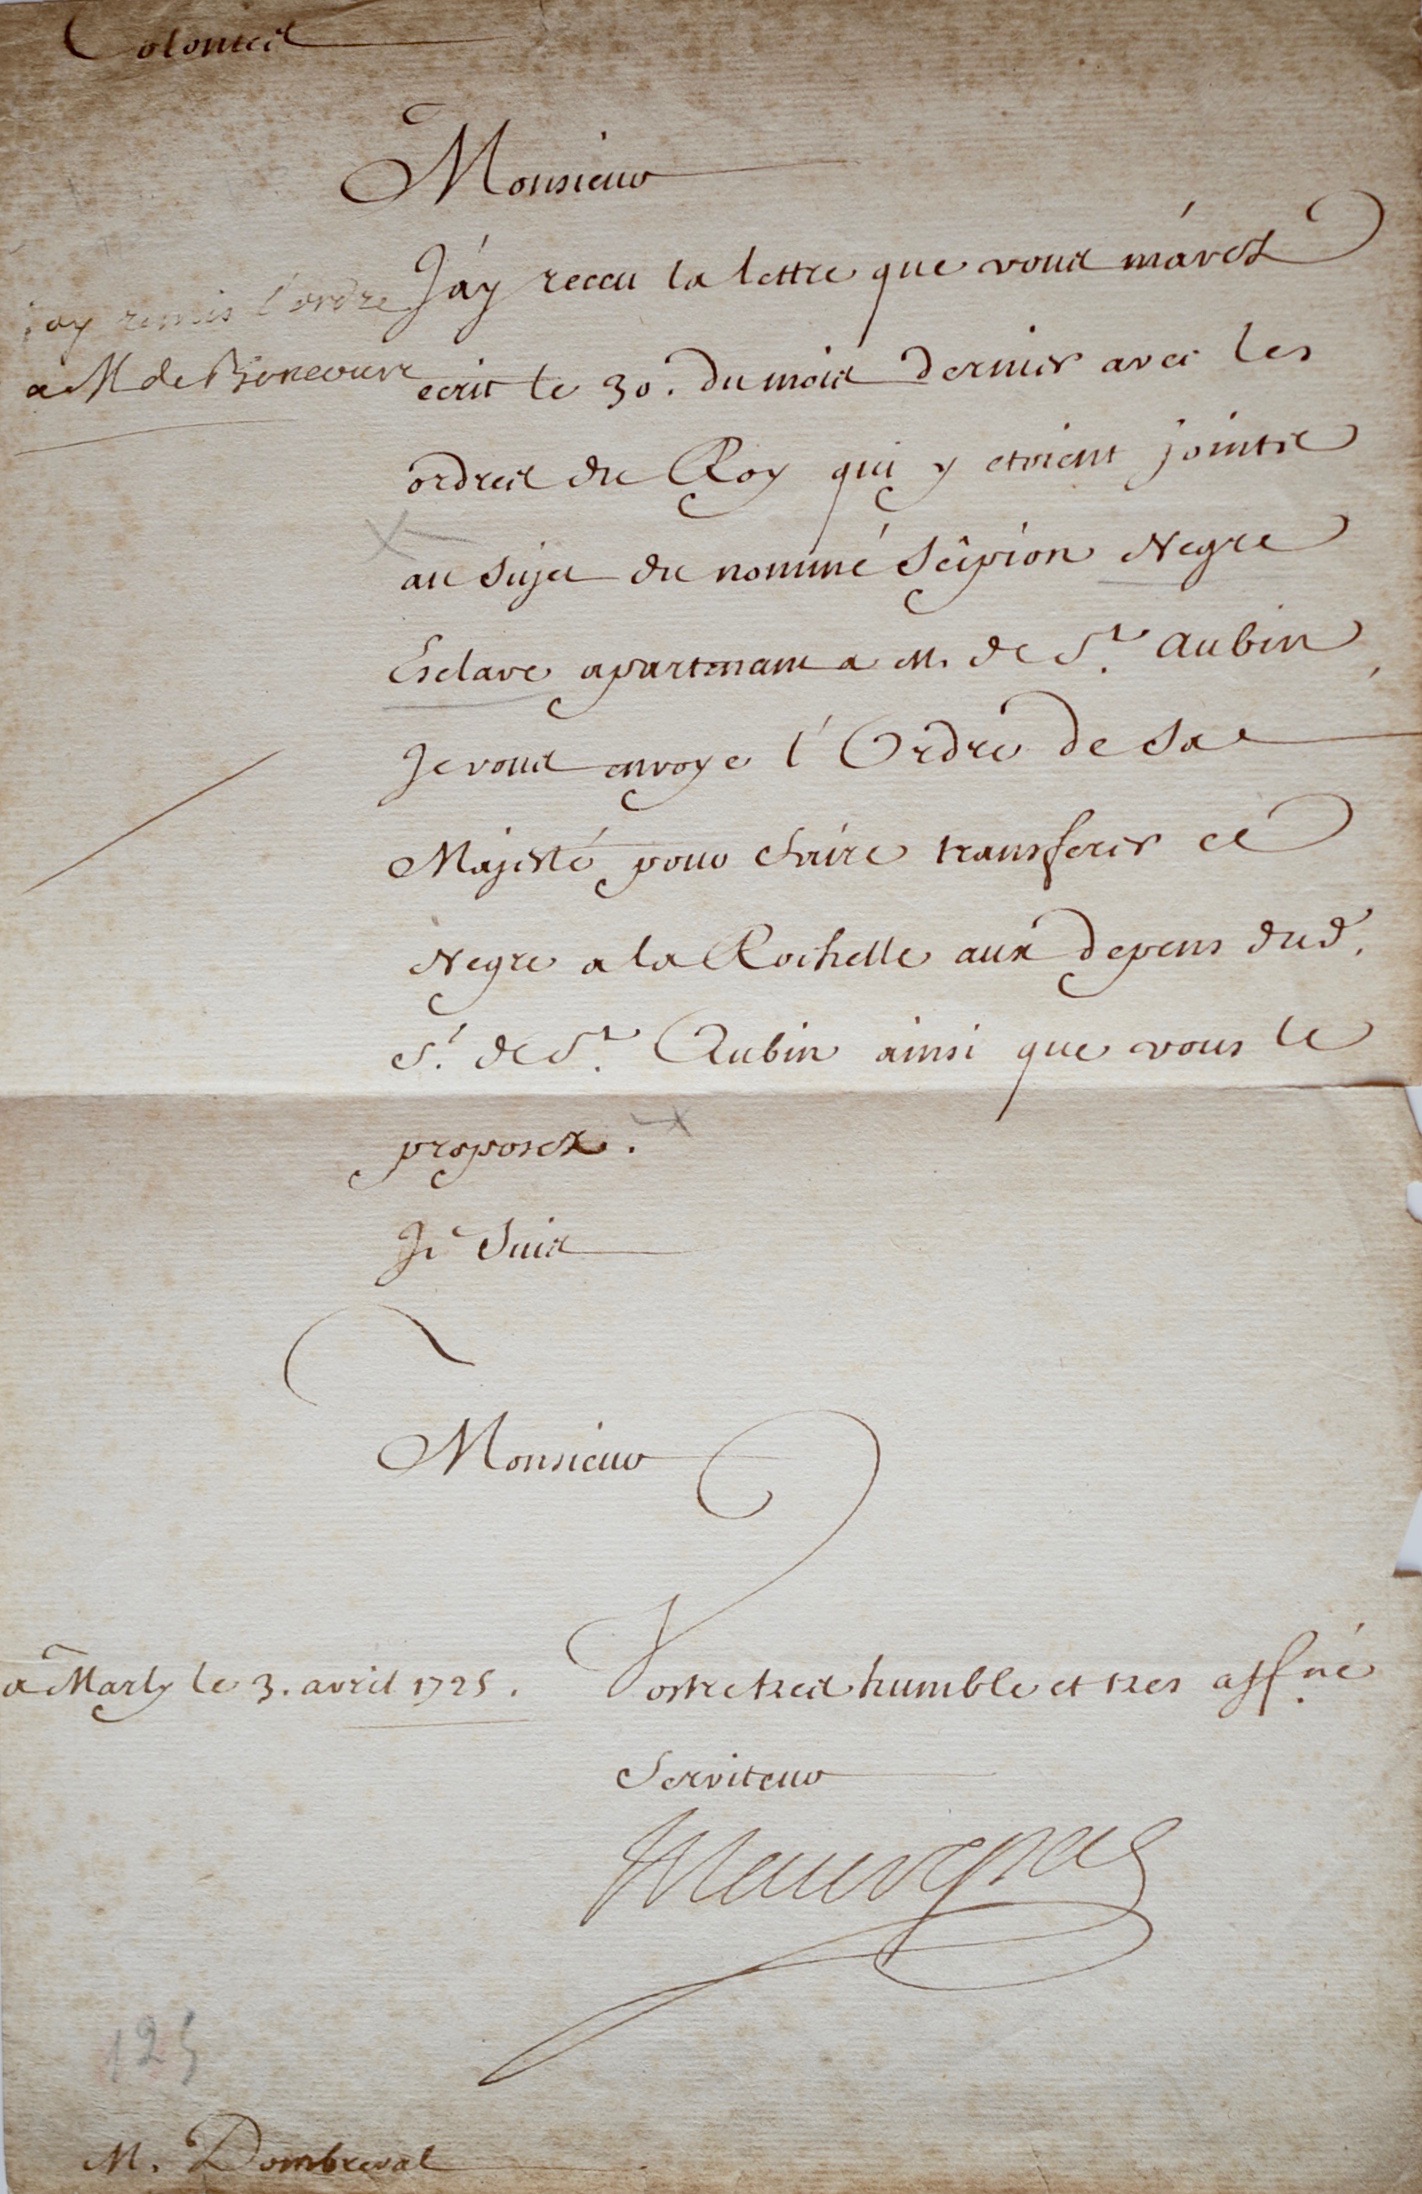 Colonies
Monsieur
J'ay receu la lettre que vous m'avez
j'ay remis l'ordre
a M de
ecrit le 30. du mois dernier avec les
ordres du Roy qui y etoient joints
au sujet du nommé Scipion Negre
Esclave apartenant a M. de St. Aubin,
Je vous envoye l'Ordre de Sa
Majesté pour faire transferer ce
Negre a la Rochelle aux depens dud.
Sr. de St. Aubin ainsi que vous le
proposez.
Je suis
Monsieur
a Marly le 3. avril 1725.
Vostre tres humble et tres affné
Serviteur
Maurepas
125
M. Dombreval